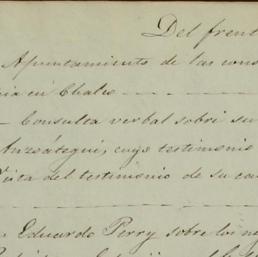 Del frent
Apuntamiento de las cons
cia en Chalco
Consulta verbal sobre su
Anzoátegui, cuyo testimonio
Vista del testimonio de su ca
Eduardo Perry sobre los ne